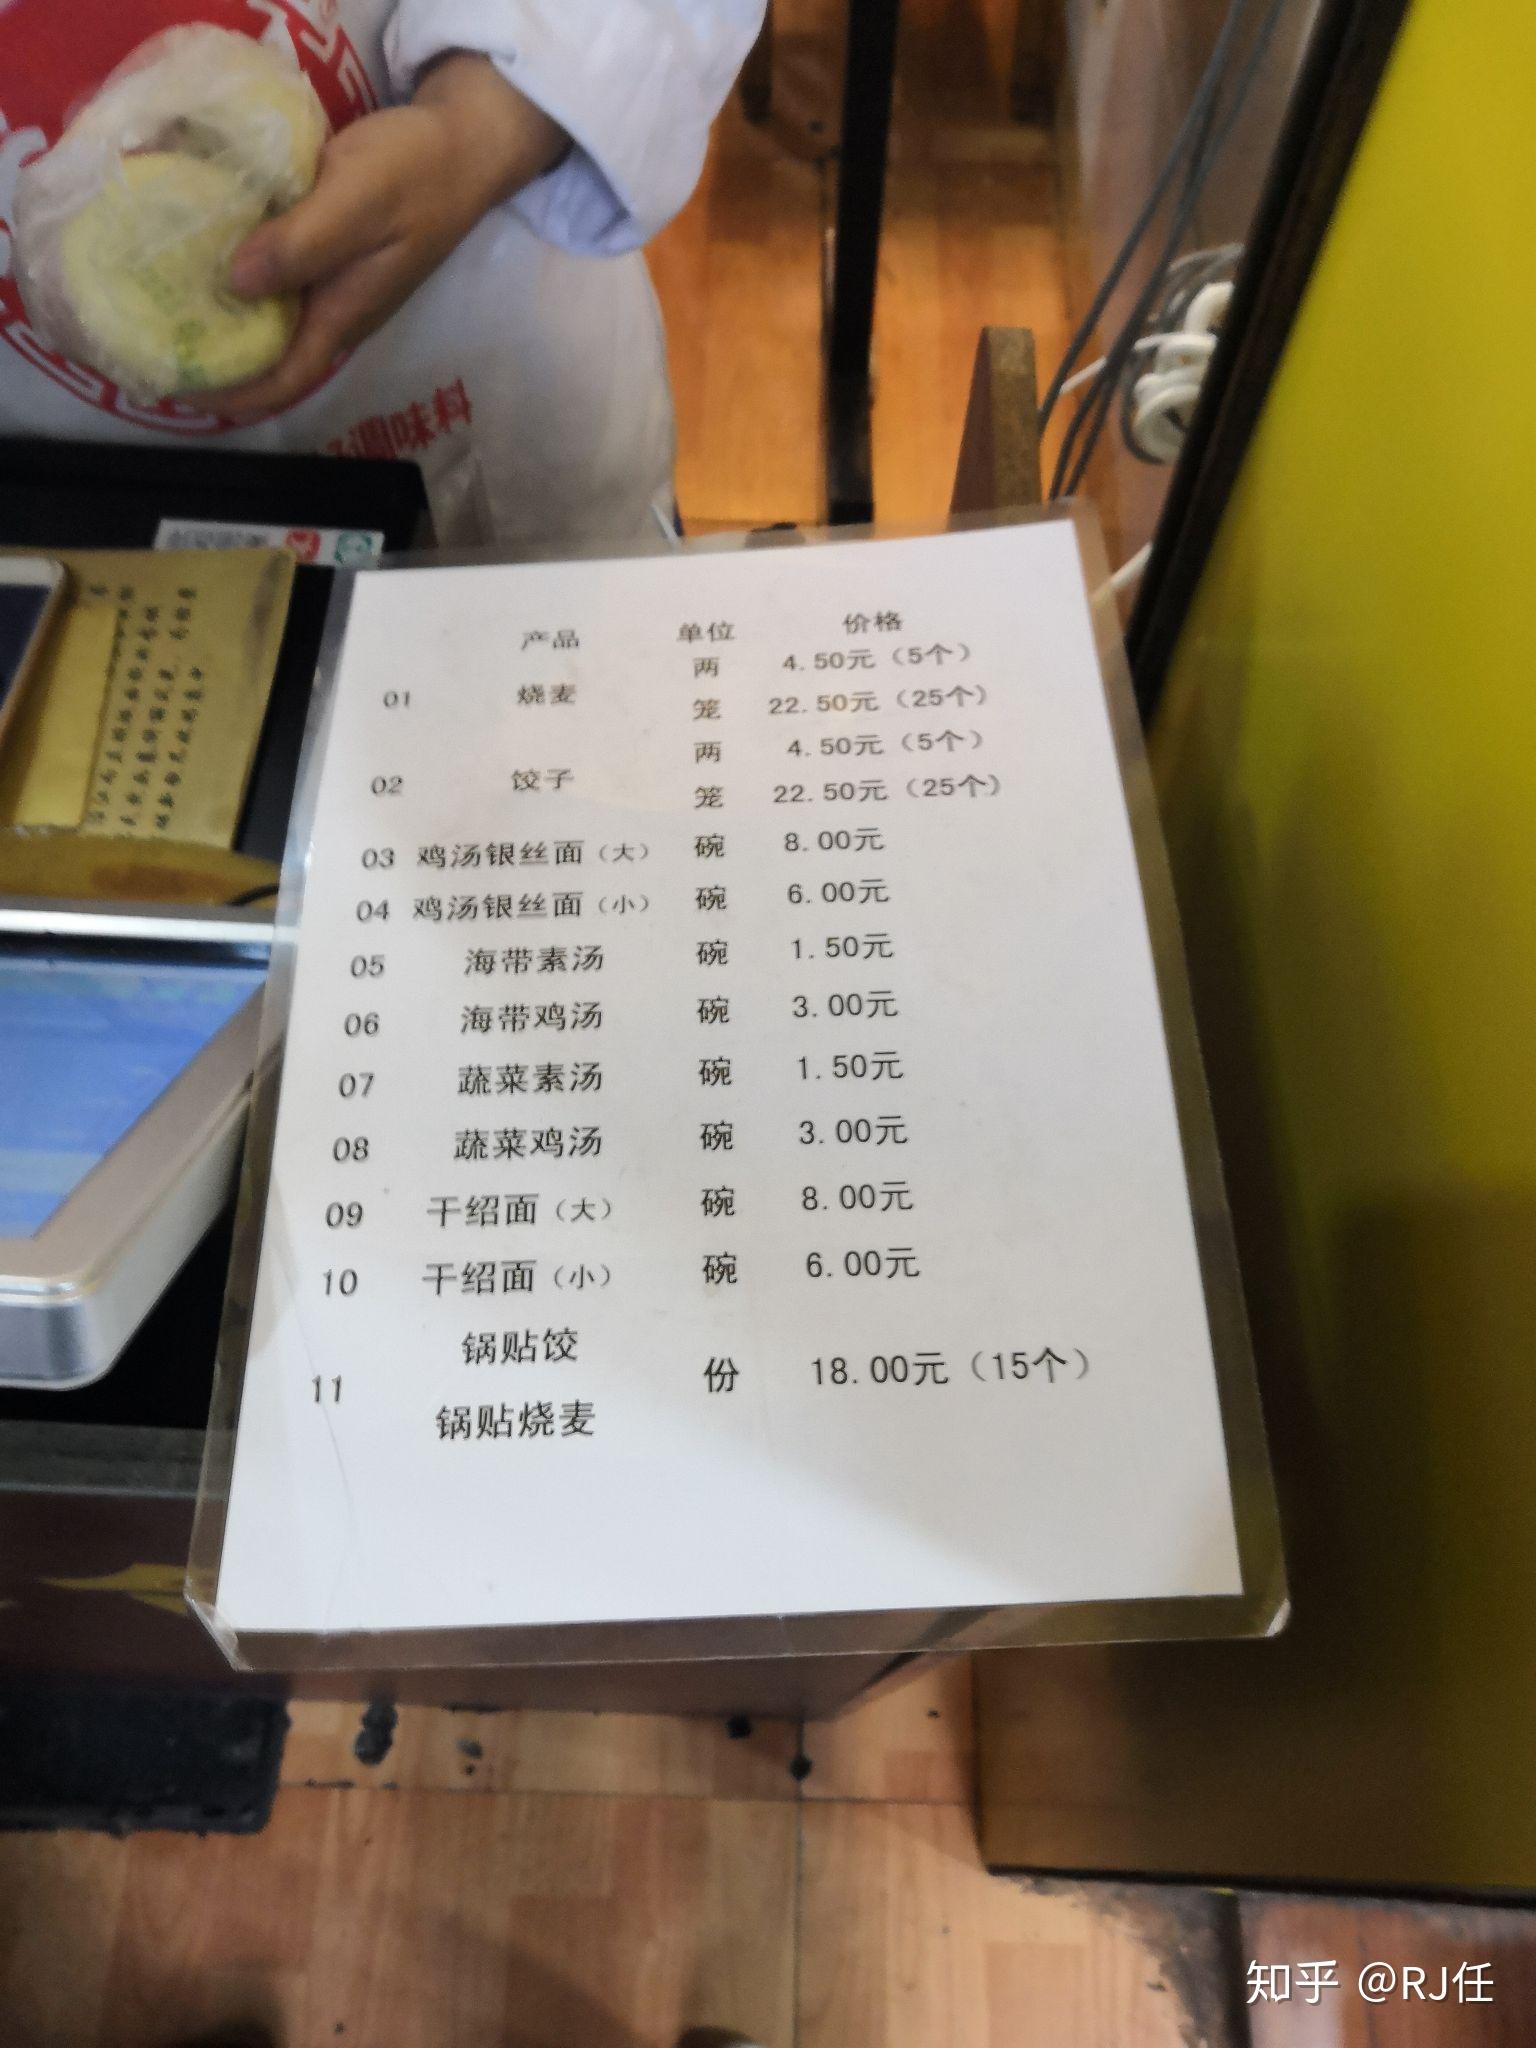 调味料
产品 单位 价格
01 烧麦 两 4.50元（5个）
笼 22.50元（25个）
02 饺子 两 4.50元（5个）
笼 22.50元（25个）
03 鸡汤银丝面（大） 碗 8.00元
04 鸡汤银丝面（小） 碗 6.00元
05 海带素汤 碗 1.50元
06 海带鸡汤 碗 3.00元
07 蔬菜素汤 碗 1.50元
08 蔬菜鸡汤 碗 3.00元
09 干绍面（大） 碗 8.00元
10 干绍面（小） 碗 6.00元
11 锅贴饺 份 18.00元（15个）
锅贴烧麦
知乎 @RJ任